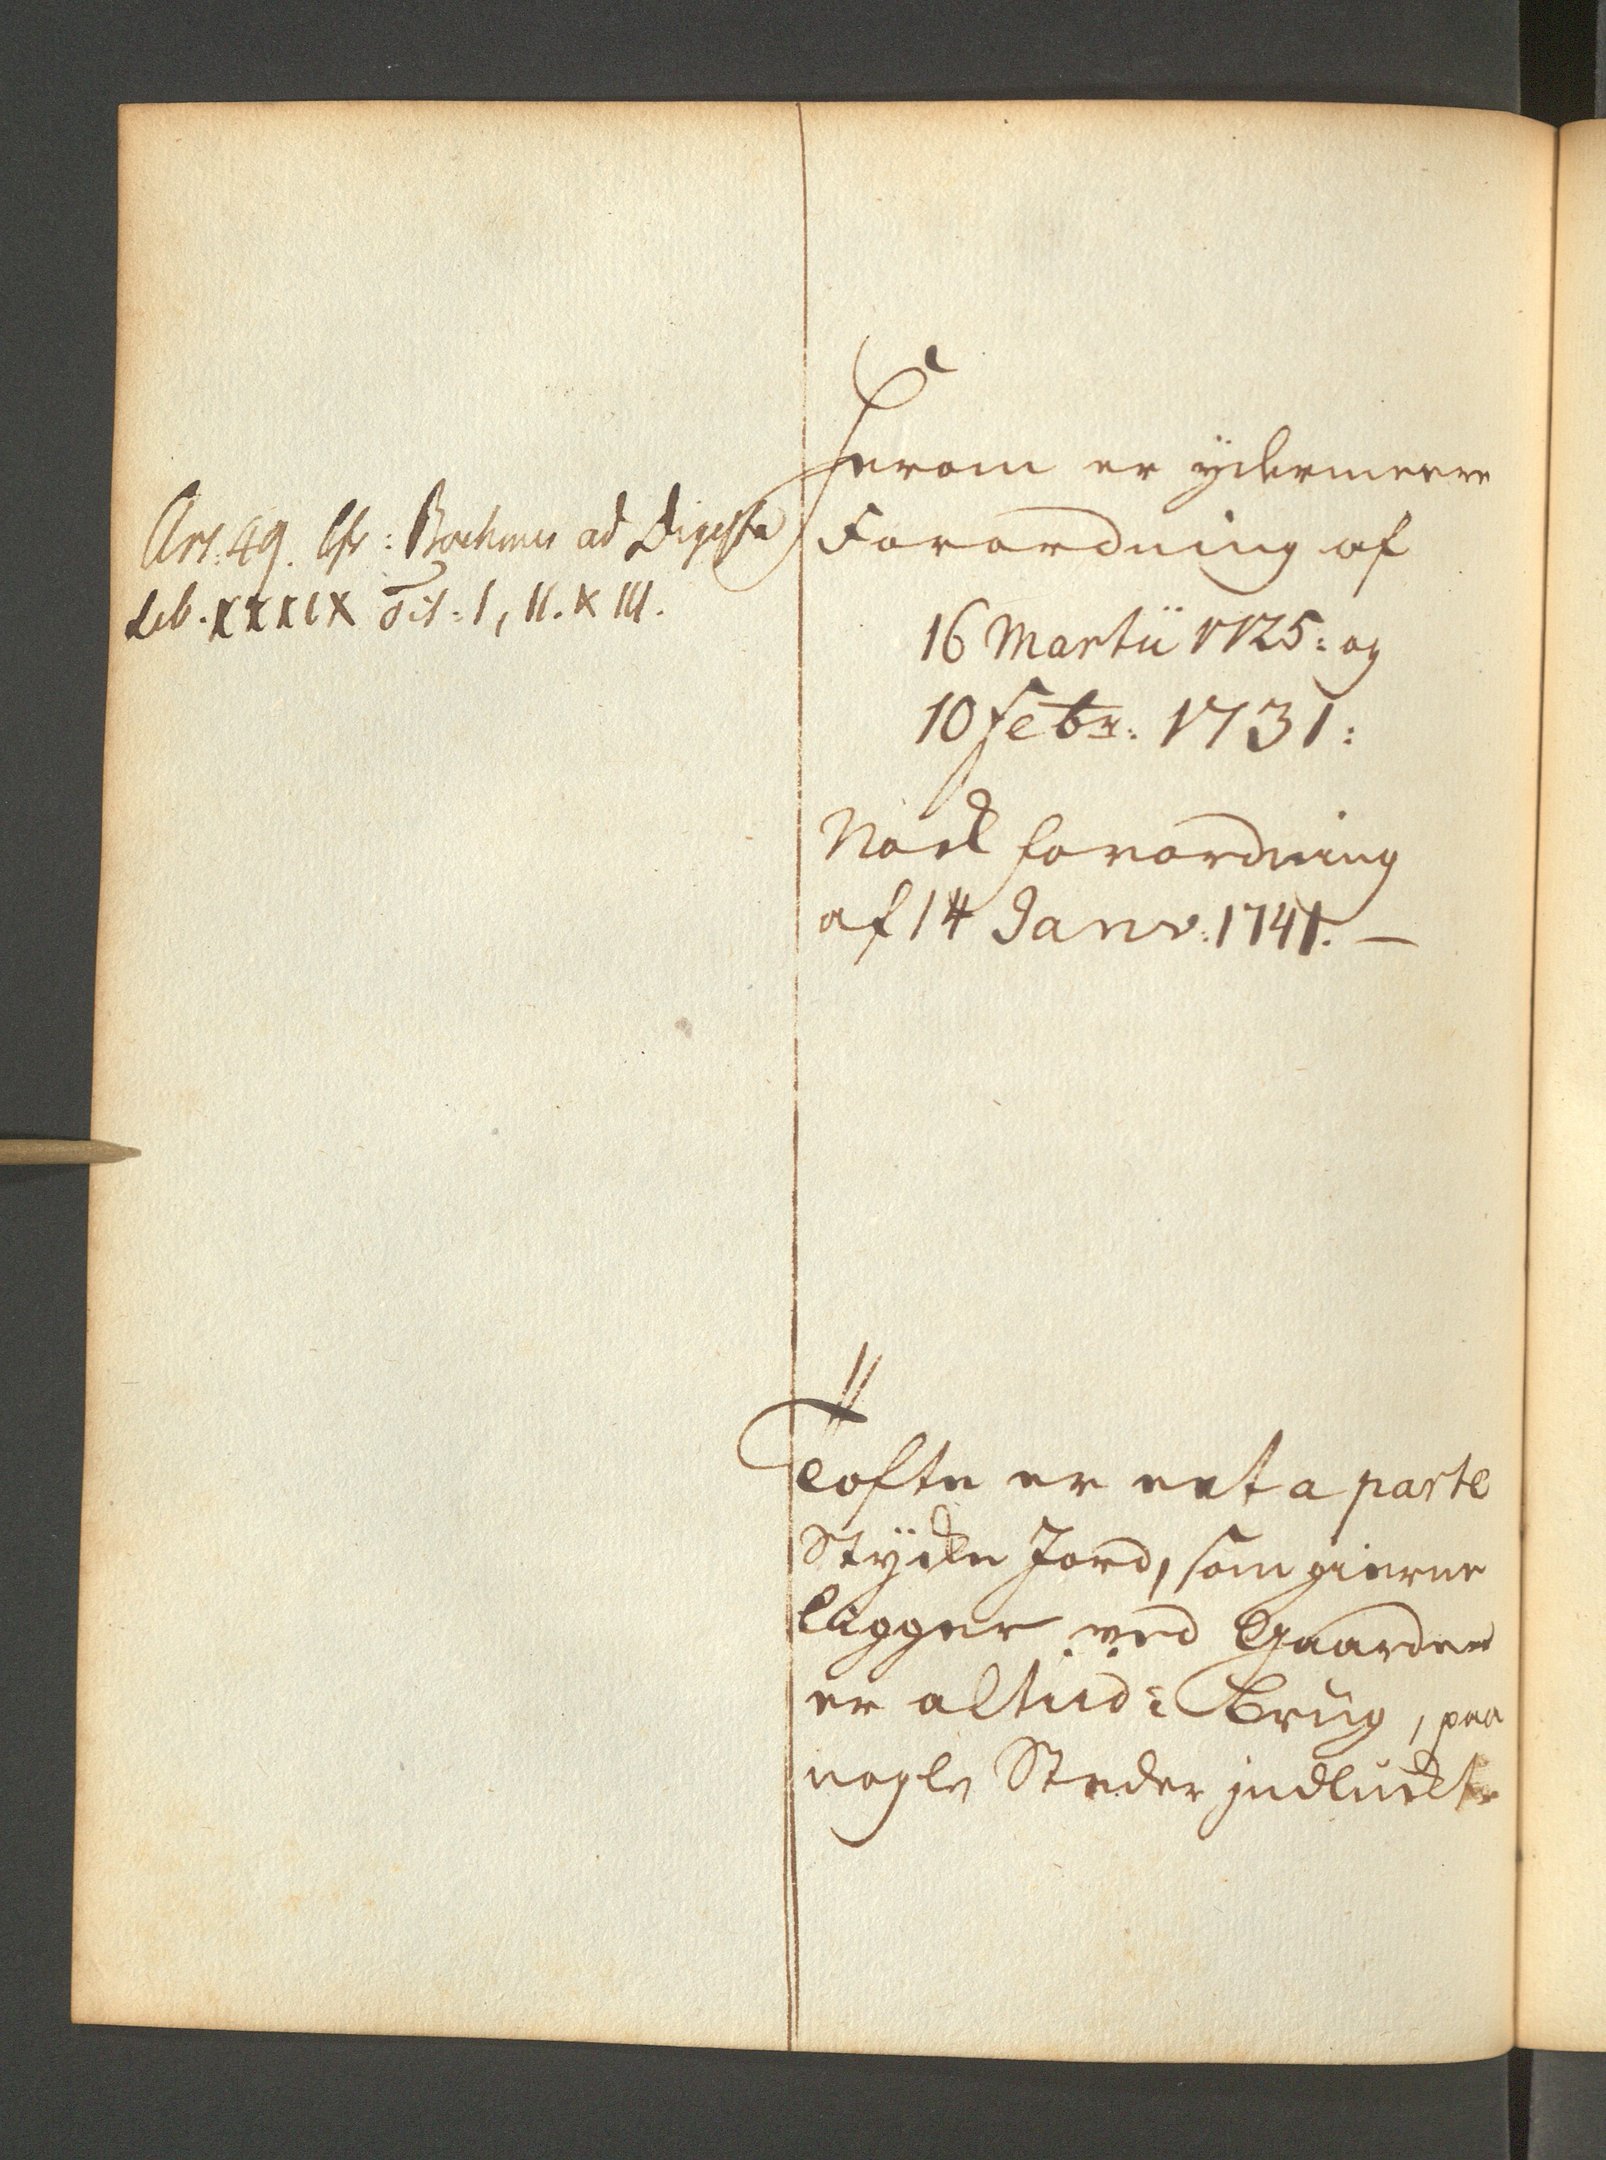 Art. 49. Cfr: Boehmer ad Digesta
Lib. XXXIX Tit: I, II. & III.
Herom er ÿdermeere
Forordning af
16 Martii 1725: og
10 Febr: 1731:
Nock forordning
af 14 Janv: 1741. –
Tofte er eet a parte
Stÿcke Jord, som gierne
ligger ved Gaarden
er altiid i Brug, paa
nogle Steder indluckt